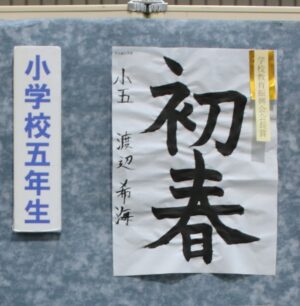 小学校五年生
学校教育振興会会長賞
初春
小五 渡辺 希海